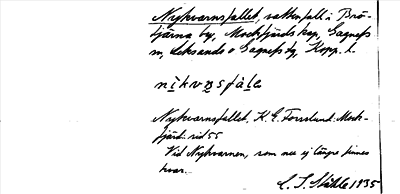 Nykvarnsfallet, vattenfall i Brö-
tjärna by, Mockfjärds kap., Gagnefs
sn, Leksands o Gagnefs tg, Kopp. l.
nìkvɒṇsfàlẹ
Nykvarnsfallet. K. E. Forsslund. Mock-
fjärd. sid 55
Vid Nykvarnen, som nu ej längre finnes
kvar.
C. I. Ståhle 1935